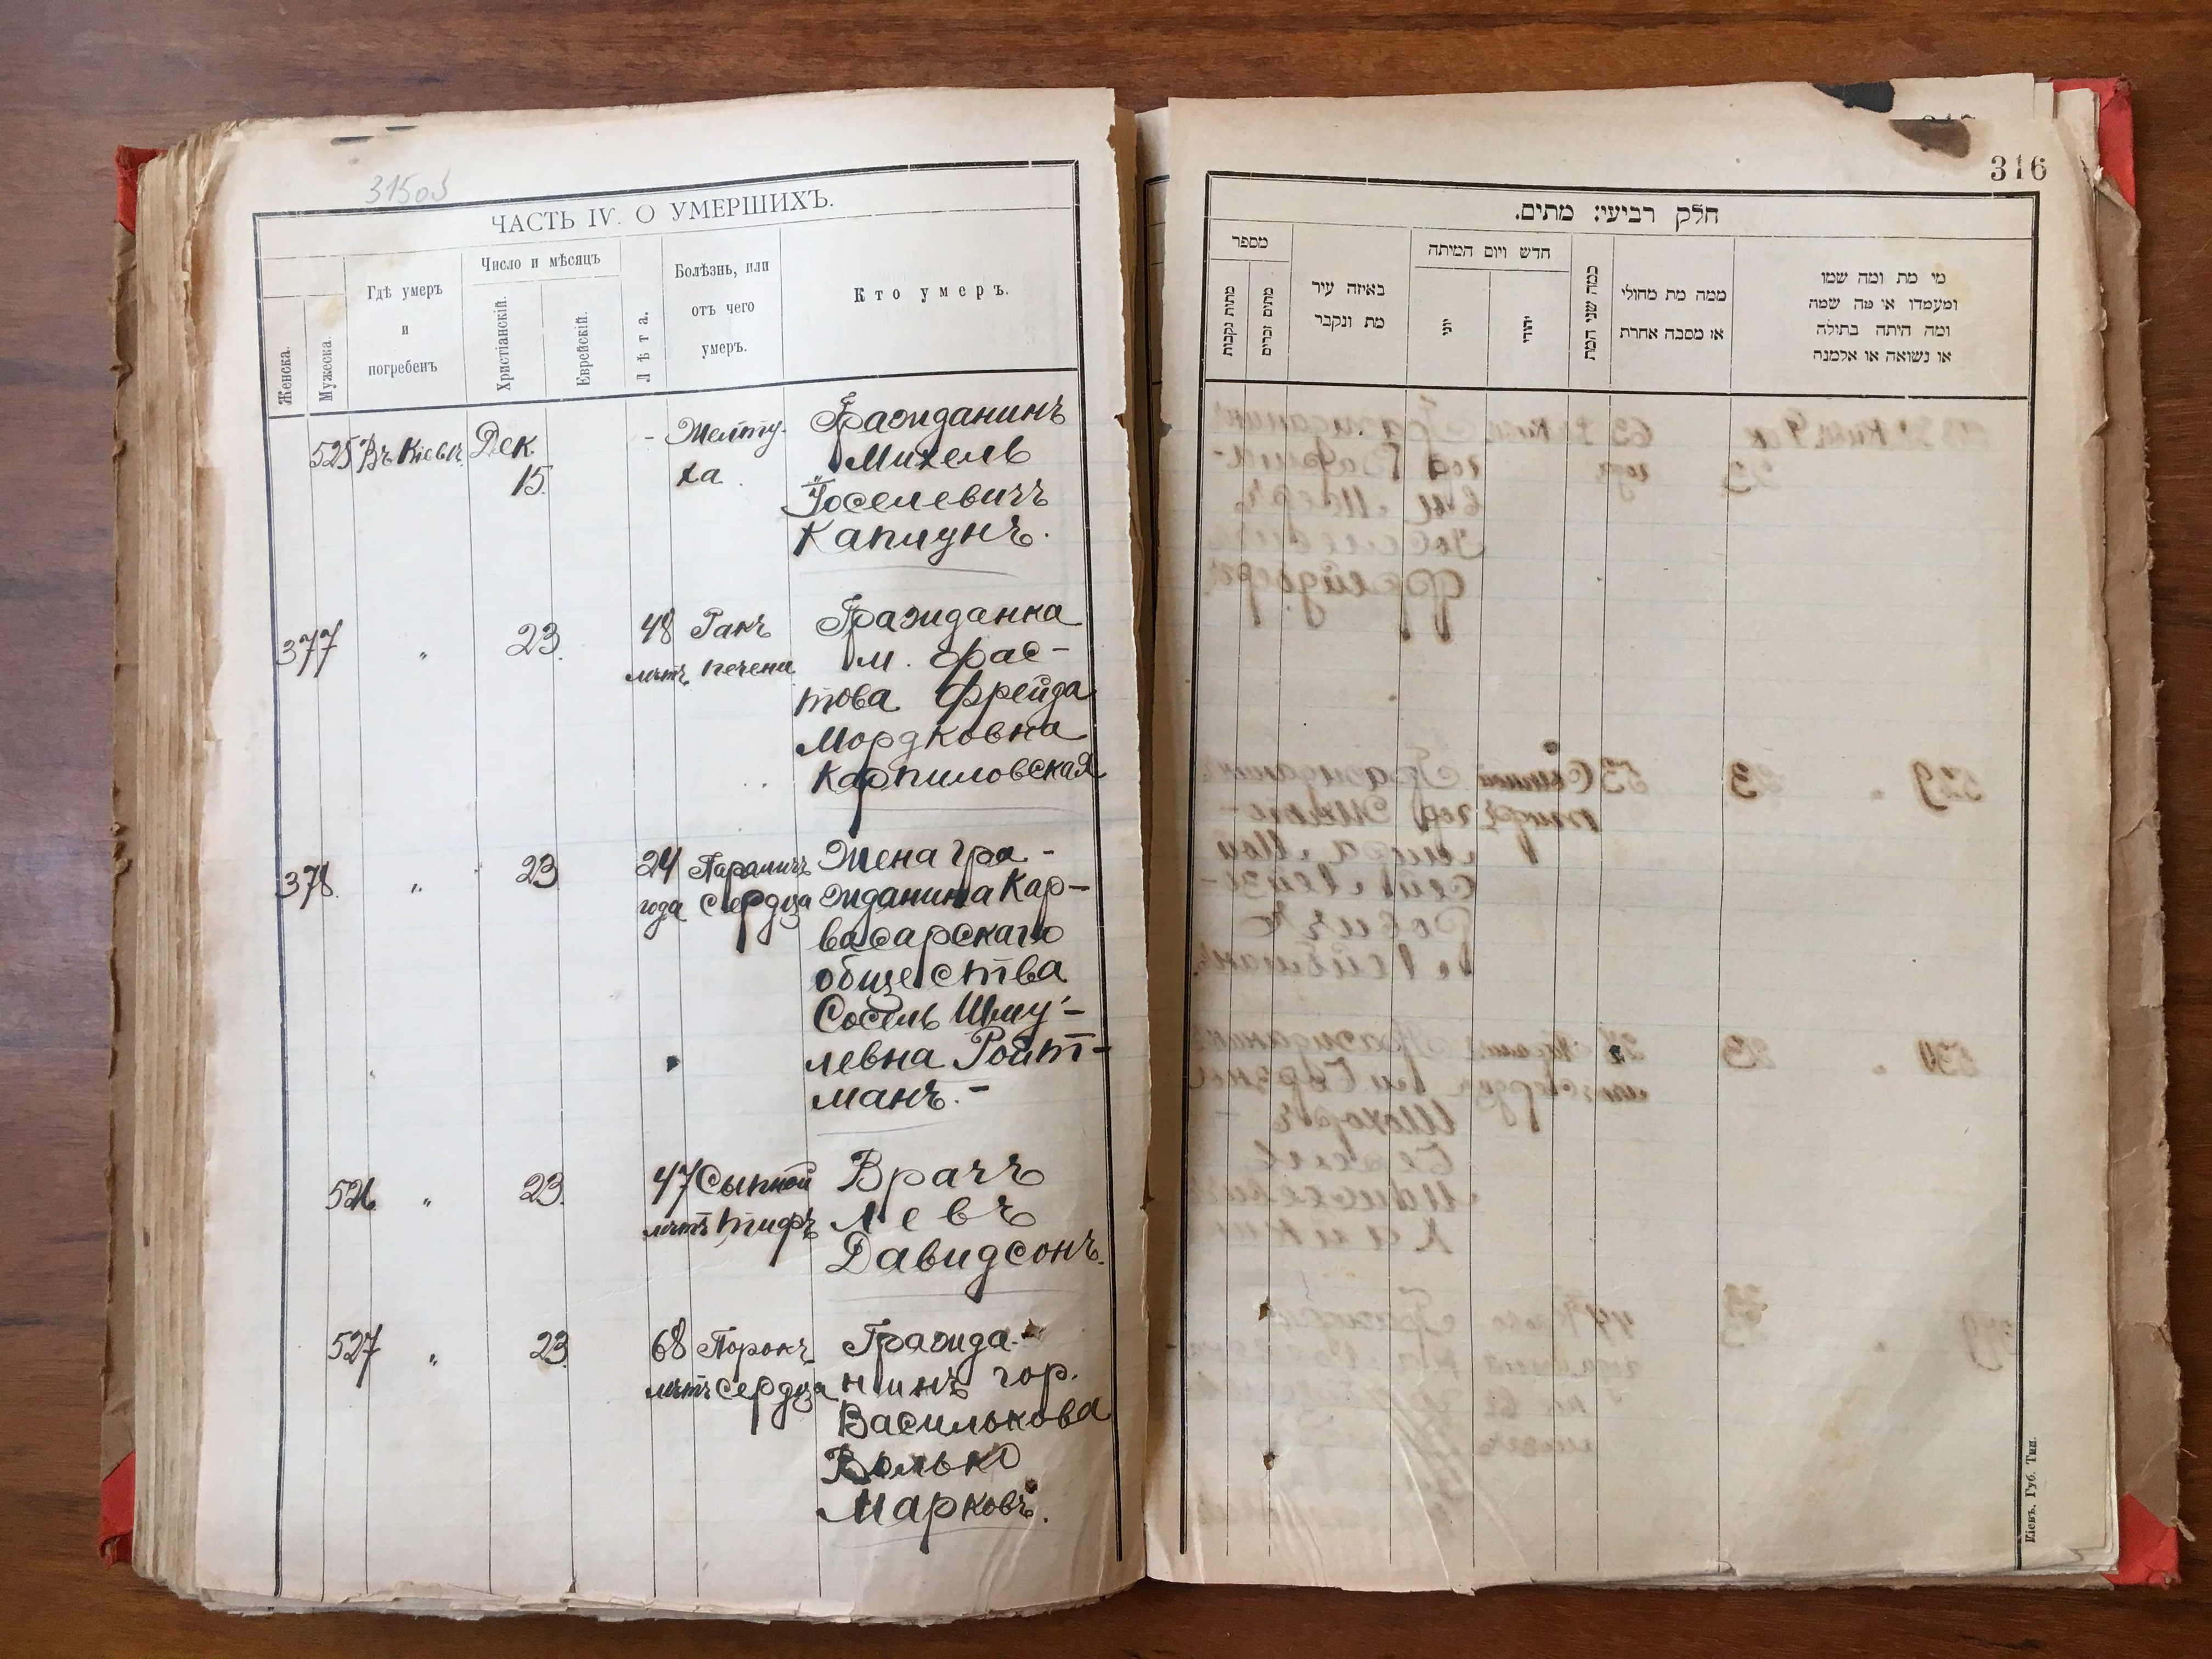 315об
ЧАСТЬ IV. О УМЕРШИХЪ.
Женска.
Мужеска.
Гдѣ умеръ
и
погребенъ
Число и мѣсяцъ
Христіанскій.
Еврейскій.
Лѣта.
Болѣзнь, или
отъ чего
умеръ.
Кто умеръ.
525 Въ Кіевѣ Дек - Желту- Гражданинъ
15. ха. Михель
Іоселевичъ
Каплунъ.
377 " 23. 48 Ракъ Гражданка
лѣтъ печени м. Фас-
това Фрейда
Мордковна
Карпиловская
378. " 23 24 Параличъ Жена гра-
года сердца жданина Кар-
васарскаго
общества
Сосель Шму-
левна Ройт-
манъ.-
526 " 23. 47 Сыпной Врачъ
лѣтъ тифъ Левъ
Давидсонъ.
527 " 23. 68 Порокъ Гражда-
лѣтъ сердца нинъ гор.
Василькова
Волько
Марковъ.
316
חלק רביעי: מתים.
מספר
מתות נקבות
מתים זכרים
באיזה עיר
מת ונקבר
חדש ויום המיתה
יוני
יהודי
כמה שני המת
ממה מת מחולי
או מסבה אחרת
מי מת ומה שמו
ומעמדו או מה שמה
ומה היתה בתולה
או נשואה או אלמנה
Кіевъ. Губ. Тип.